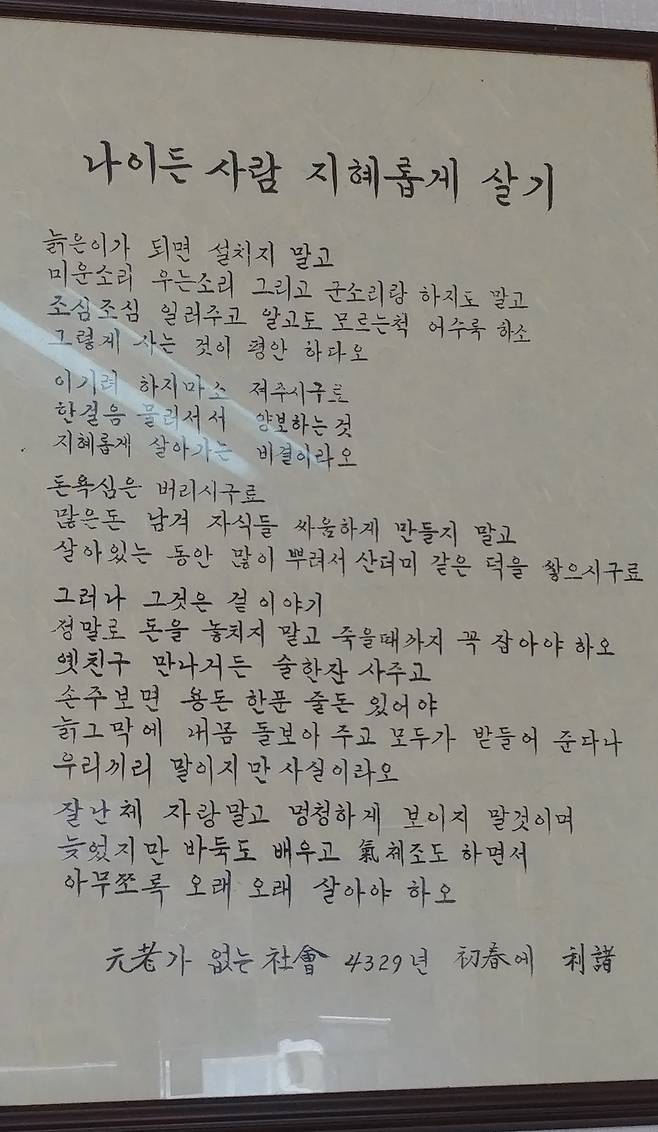 나이든 사람 지혜롭게 살기
늙은이가 되면 설치지 말고
미운소리 우는소리 그리고 군소리랑 하지도 말고
조심조심 일러주고 알고도 모르는척 어수룩 하소
그렇게 사는 것이 평안 하다오
이기려 하지마소 져주시구료
한걸음 물러서서 양보하는 것
지혜롭게 살아가는 비결이라오
돈욕심은 버리시구료
많은돈 남겨 자식들 싸움하게 만들지 말고
살아있는 동안 많이 뿌려서 산더미 같은 덕을 쌓으시구료
그러나 그것은 겉 이야기
정말로 돈을 놓치지 말고 죽을때까지 꼭 잡아야 하오
옛친구 만나거든 술한잔 사주고
손주보면 용돈 한푼 줄돈 있어야
늙그막에 내몸 돌보아 주고 모두가 받들어 준다나
우리끼리 말이지만 사실이라오
잘난체 자랑말고 멍청하게 보이지 말것이며
늦었지만 바둑도 배우고 氣체조도 하면서
아무쪼록 오래 오래 살아야 하오
元老가 없는 社會 4329년 初春에 利諸